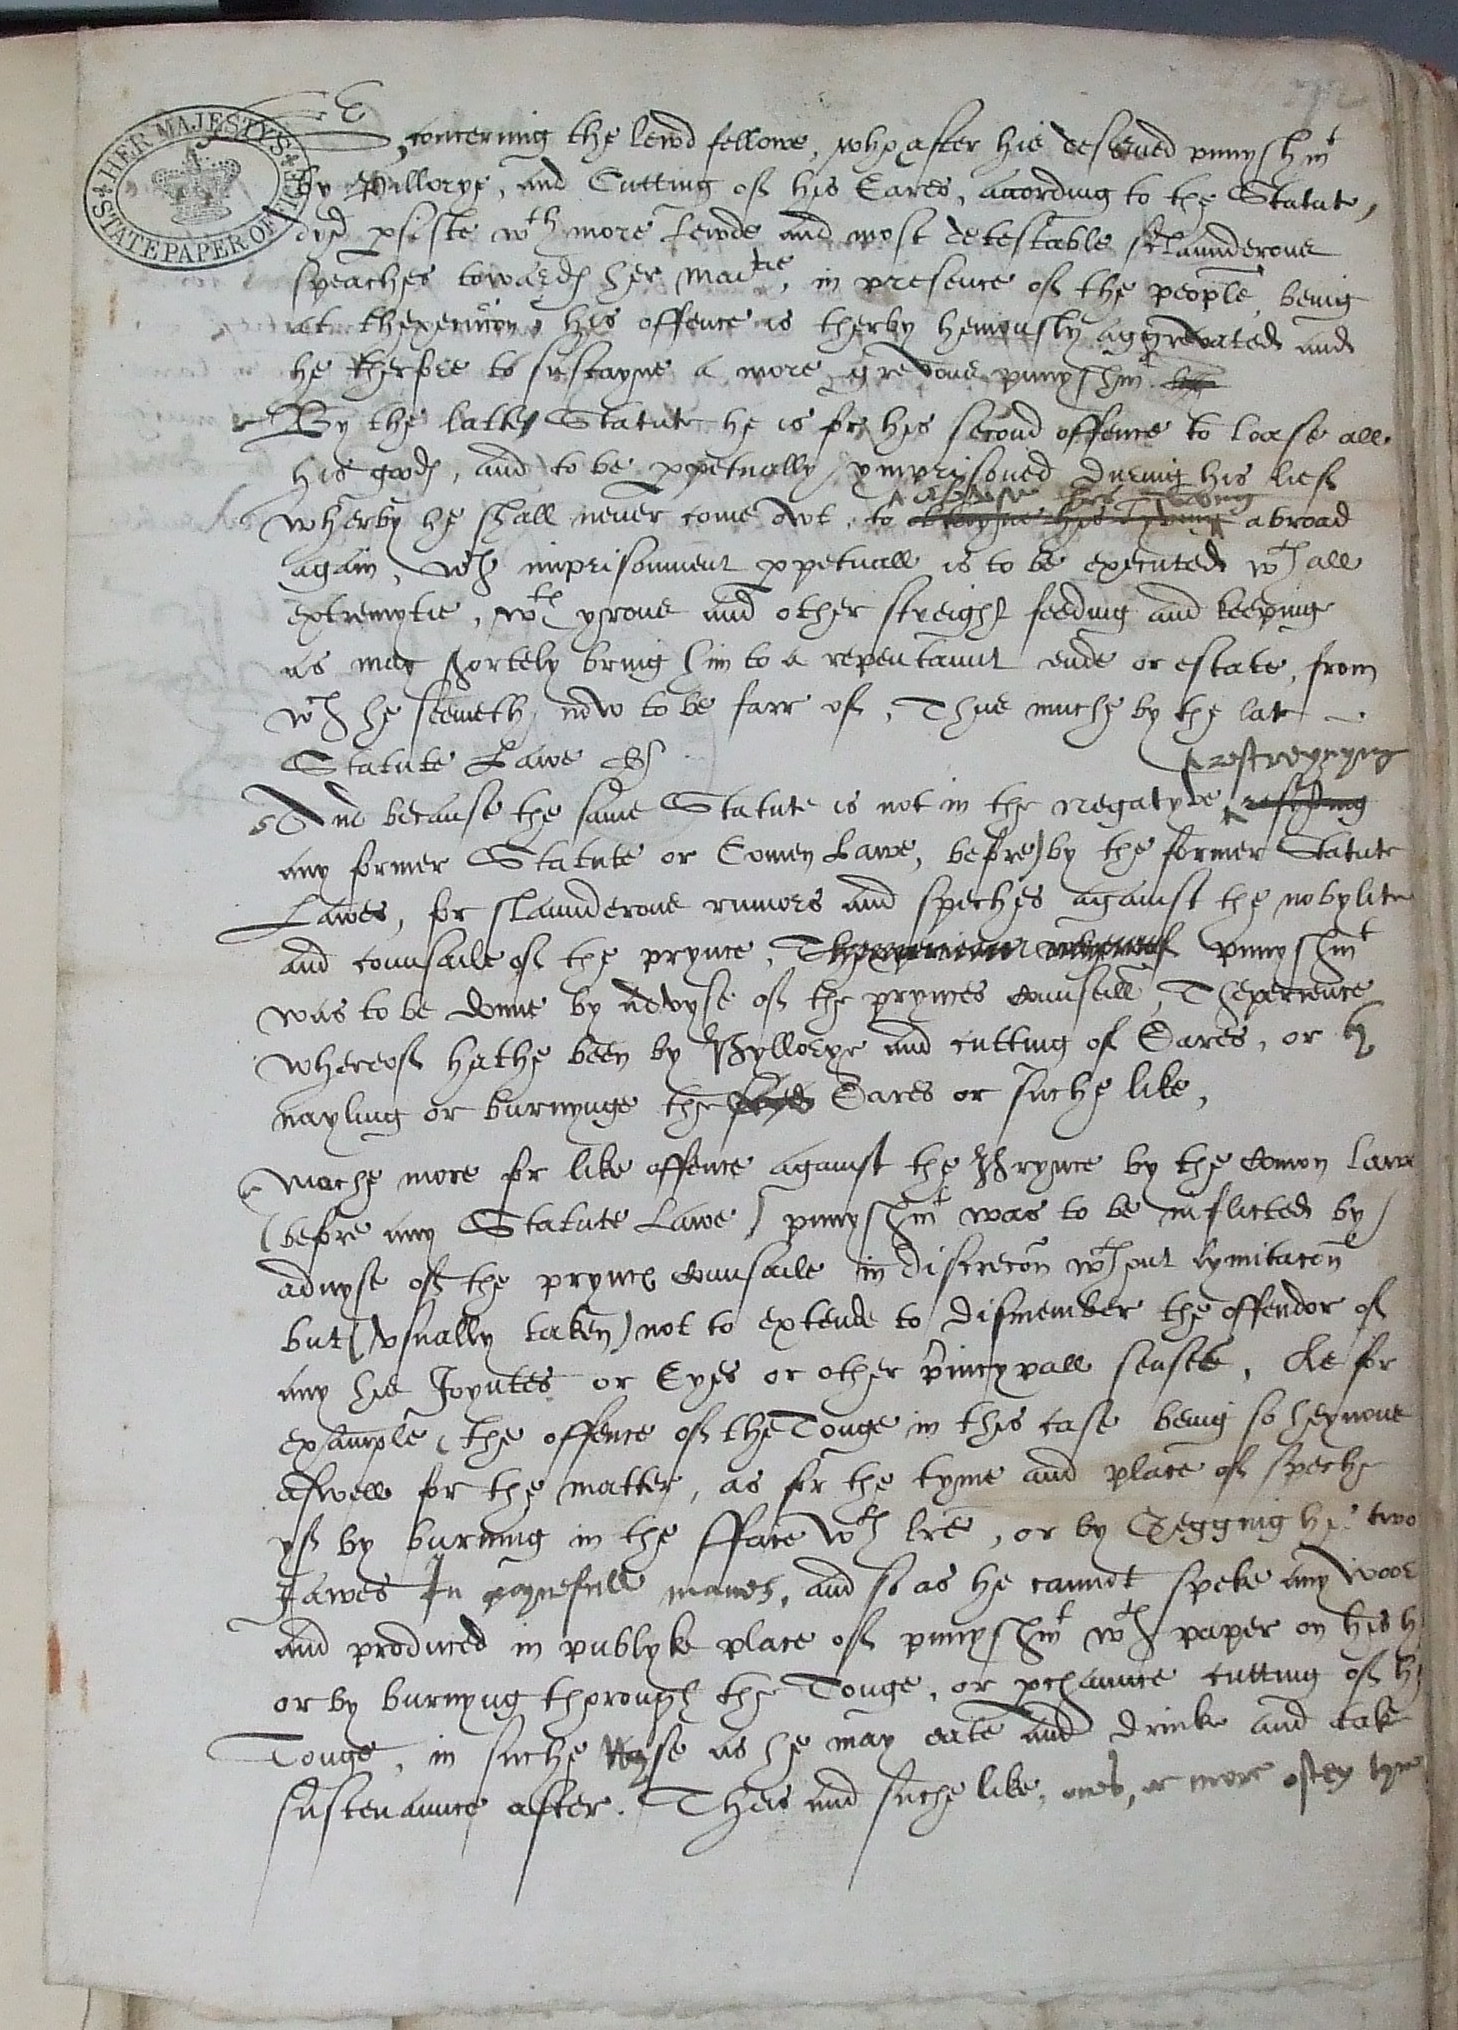 HER MAJESTY'S STATE PAPER OFFICE
concerning the lewd fellowe, who after his deserved punyshmt
by Pillorye, and Cutting of his Eares, according to the Statute,
dyd psiste wth more lewde and most detestable sclaunderous
speaches towards her matie, in presence of the people, being
at thexecucon, his offence is therby heinously aggrevated and
he therfore to susteyne a more grevous punyshmt
By the latter Statute he is for his second offence to loase all
his goods, and to be ppetually ymprisoned during his lief
wherby he shall never come owt, to abuse his tong abroad
again, wch imprisonment ppetuall is to be executed wth all
extremytie, wth yrons and other streight feeding and keeping
as may shortely bring him to a repentaunt ende or estate, from
wch he seemeth now to be farr of, Thus muche by the late
Statute Lawe
restreynyng
And because the same Statute is not in the negatyve,
any former Statute or Comen Lawe, before) by the former Statute
Lawes, for slaunderous rumors and speches against the nobylite
and counsaile of the prynce, punyshmt
was to be donne by advyse of the prynces counseill, Thexperience
whereof hathe been by Pyllorye and cutting of Eares, or
nayling or burnynge the Eares or suche like,
Moche more for like offence against the Prynce by the Comon Lawe
(before any Statute Lawe) punyshmt was to be inflicted by
advyse of the prynces counsaile in discrecon wthout lymitacon
but (usually taken) not to extende to dismember the offendor of
any his Joyntes or Eyes or other principall senses, As for
example, the offence of the Tonge in this case being so heynous
aswell for the matter, as for the tyme and place of speche
yf by burning in the fface wth lre, or by Gegging his two
Jawes In paynefull maner, and so as he cannot speke any woor
and produced in publyke place of punyshmt wth paper on his h
or by burnyng thorough the Tonge, or pchaunce cutting of h
Tonge, in suche wyse as he may eate and drinke and take
sustenaunce after. Theis and suche like, ones, or more often tyme